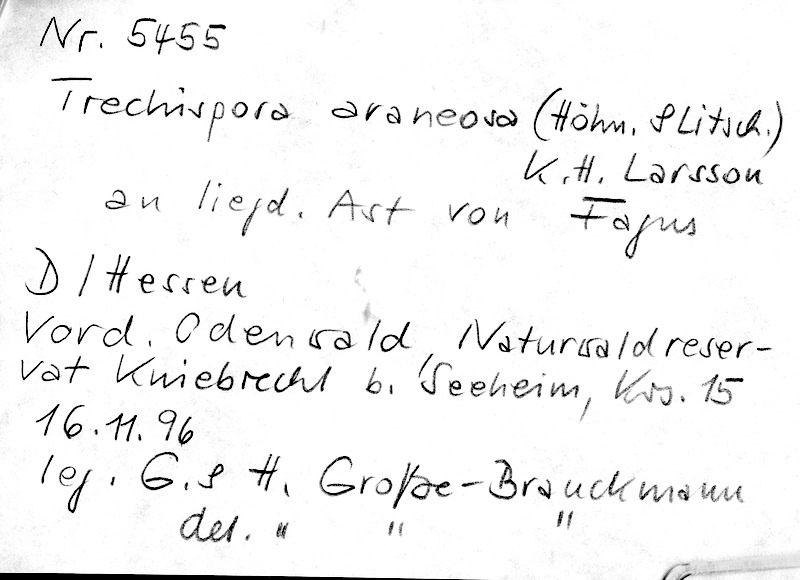 Nr. 5455
Trechispora araneosa (Höhn. & Litsch.)
K.H. Larsson
an liegd. Ast von Fagus
D / Hessen
Vord. Odenwald, Naturwaldreser-
vat Kniebrecht b. Seeheim, Krs. 15
16.11.96
leg. G. & H. Große-Brauckmann
det. " " "